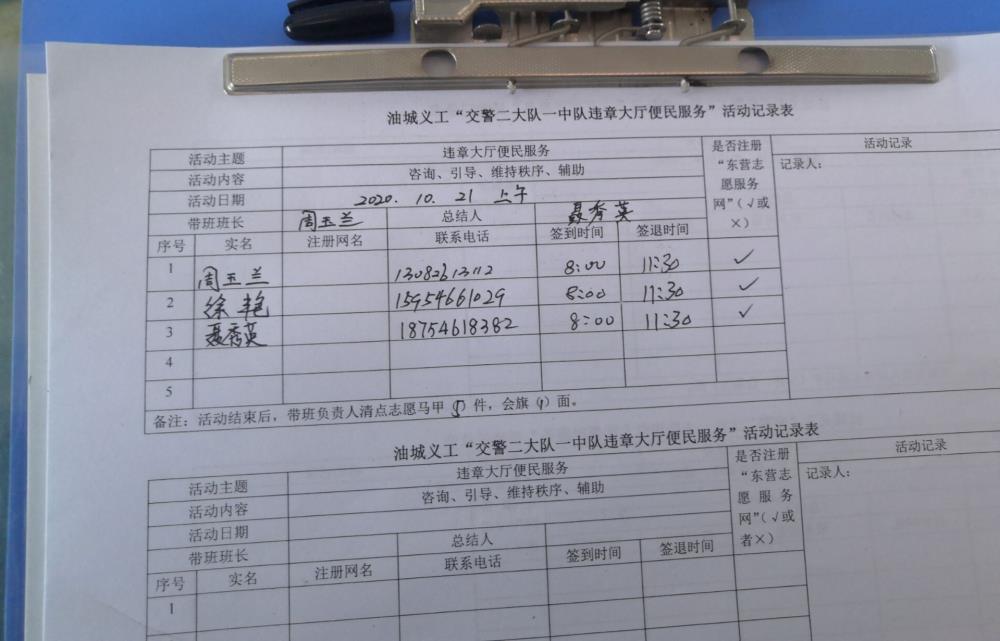 油城义工“交警二大队一中队违章大厅便民服务”活动记录表
活动主题 违章大厅便民服务 是否注册“东营志愿服务网”（√或×） 活动记录
活动内容 咨询、引导、维持秩序、辅助 记录人：
活动日期 2020.10.21 上午
带班班长 周玉兰 总结人 聂秀英
序号 实名 注册网名 联系电话 签到时间 签退时间
1 周玉兰 13082613112 8:00 11:30 ✓
2 徐艳 15954661029 8:00 11:30 ✓
3 聂秀英 18754618382 8:00 11:30 ✓
4
5
备注：活动结束后，带班负责人清点志愿马甲（5）件，会旗（1）面。
油城义工“交警二大队一中队违章大厅便民服务”活动记录表
活动主题 违章大厅便民服务 是否注册“东营志愿服务网”（√或者×） 活动记录
活动内容 咨询、引导、维持秩序、辅助 记录人：
活动日期
带班班长 总结人
序号 实名 注册网名 联系电话 签到时间 签退时间
1